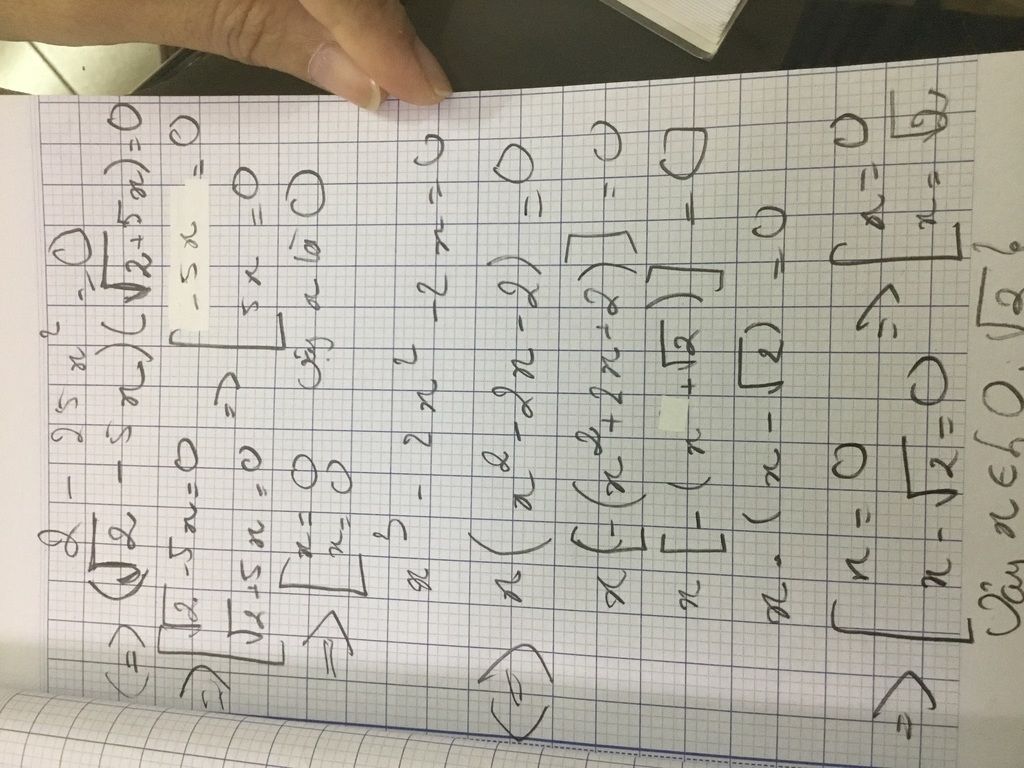 2 - 25x² = 0
(=) (√2 - 5x)(√2+5x)=0
=) [√2 - 5x = 0 [-5x = 0
√2+5x = 0 => 5x = 0
=) [x = 0 Vậy x là 0
x = 0
x³ - 2x² - 2x = 0
(=) x(x² - 2x - 2) = 0
x[-(x²+2x+2)] = 0
x[-(x+√2)] = 0
x·(x-√2) = 0
=) [x = 0 => [x = 0
x - √2 = 0 x = √2
Vậy x∈{0; √2}